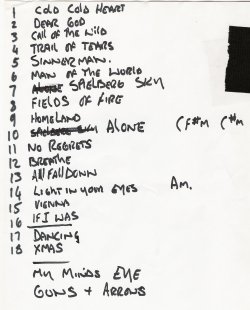 1 COLD COLD HEART
2 DEAR GOD
3 CALL OF THE WILD
4 TRAIL OF TEARS
5 SINNERMAN.
6 MAN OF THE WORLD
7 SPIELBERG SKY
8 FIELDS OF FIRE
9 HOMELAND
10 ALONE (F#M C#M
11 NO REGRETS
12 BREATHE
13 All FALL DOWN
14 LIGHT IN YOUR EYES Am.
15 VIENNA
16 IF I WAS
17 DANCING
18 XMAS
MY MINDS EYE
GUNS + ARROWS